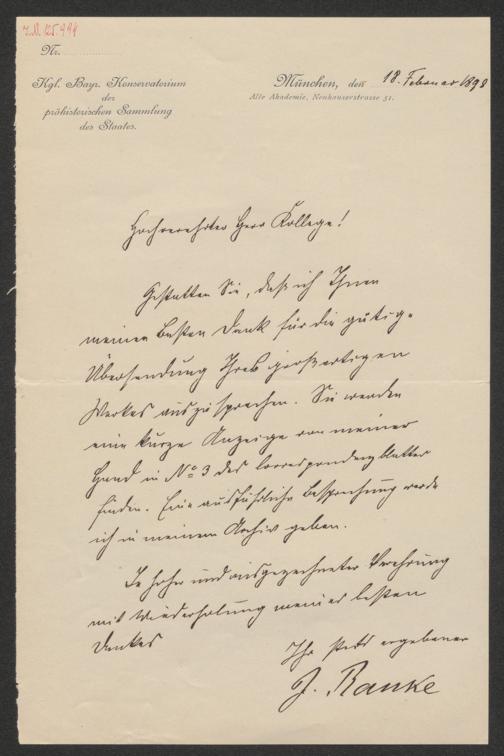 I.N. 125.994
Nr.
Kgl. Bayr. Konservatorium
der
prähistorischen Sammlung
des Staates.
München, den 18. Februar 1898
Alte Akademie, Neuhauserstrasse 51.
Hochverehrter Herr Kollege!
Gestatten Sie, daß ich Ihnen
meinen besten Dank für die gütige
Übersendung Ihres großartigen
Werkes auszusprechen. Sie werden
eine kurze Anzeige von meiner
Hand in No 3 des Correspondenzblattes
finden. Eine ausführliche Besprechung werde
ich in meinem Archiv geben.
In hoher und ausgezeichneter Verehrung
mit Wiederholung meines besten
Dankes
Ihr stets ergebener
J. Ranke